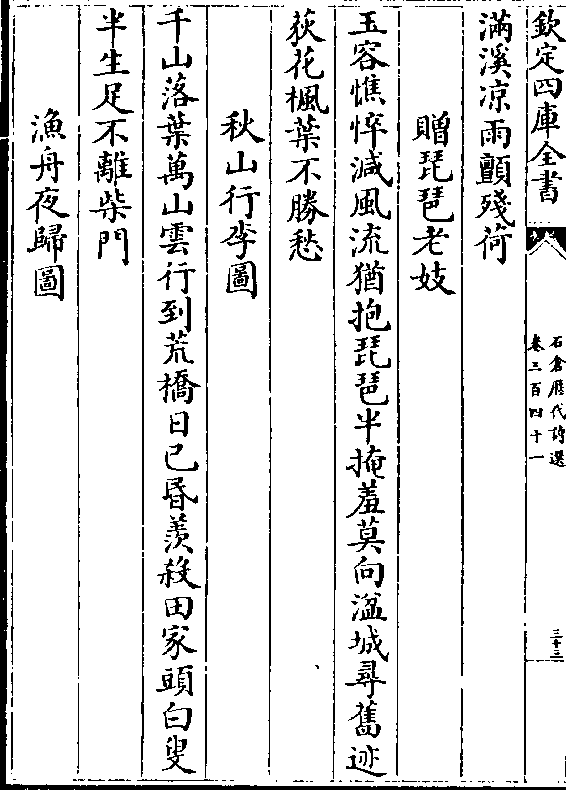 欽定四庫全書
石倉歷代詩選
卷三百四十一
三十三
滿溪凉雨顫殘荷
贈琵琶老妓
玉容憔悴減風流猶抱琵琶半掩羞莫向湓城尋舊迹
荻花楓葉不勝愁
秋山行李圖
千山落葉萬山雲行到荒橋日已昏羨殺田家頭白叟
半生足不離柴門
漁舟夜歸圖